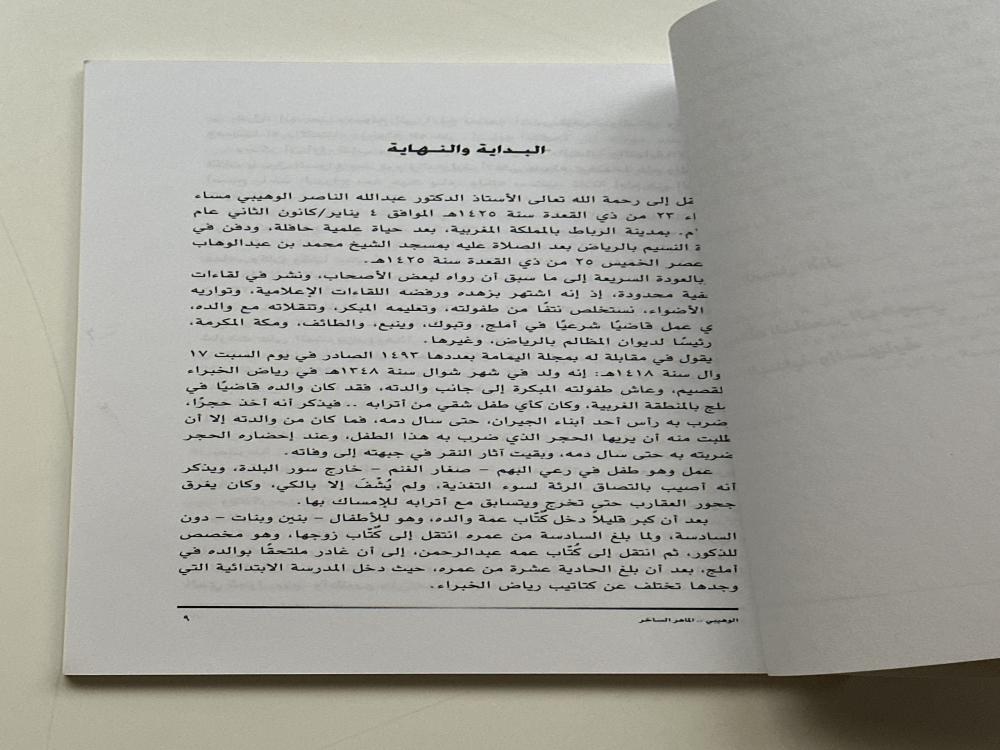 البداية والنهاية
إلى رحمة الله تعالى الأستاذ الدكتور عبدالله الناصر الوهيبي مساء
٢٣ من ذي القعدة سنة ١٤٢٥هـ الموافق ٤ يناير/كانون الثاني عام
بمدينة الرباط بالمملكة المغربية، بعد حياة علمية حافلة، ودفن في
النسيم بالرياض بعد الصلاة عليه بمسجد الشيخ محمد بن عبدالوهاب
عصر الخميس ٢٥ من ذي القعدة سنة ١٤٢٥هـ.
بالعودة السريعة إلى ما سبق أن رواه لبعض الأصحاب، ونشر في لقاءات
محدودة، إذ إنه اشتهر بزهده ورفضه اللقاءات الإعلامية، وتواريه
الأضواء، نستخلص نتفًا من طفولته، وتعليمه المبكر، وتنقلاته مع والده،
عمل قاضيًا شرعيًا في أملج، وتبوك، وينبع، والطائف، ومكة المكرمة،
رئيسًا لديوان المظالم بالرياض، وغيرها.
يقول في مقابلة له بمجلة اليمامة بعددها ١٤٩٣ الصادر في يوم السبت ١٧
سنة ١٤١٨هـ: إنه ولد في شهر شوال سنة ١٣٤٨هـ في رياض الخبراء
لقصيم، وعاش طفولته المبكرة إلى جانب والدته، فقد كان والده قاضيًا في
بالمنطقة الغربية، وكان كأي طفل شقي من أترابه .. فيذكر أنه أخذ حجرًا،
ضرب به رأس أحد أبناء الجيران، حتى سال دمه، فما كان من والدته إلا أن
طلبت منه أن يريها الحجر الذي ضرب به هذا الطفل، وعند إحضاره الحجر
ضربته به حتى سال دمه، وبقيت آثار النقر في جبهته إلى وفاته.
عمل وهو طفل في رعي البهم – صغار الغنم – خارج سور البلدة، ويذكر
أنه أصيب بالتصاق الرئة لسوء التغذية، ولم يُشْفَ إلا بالكي، وكان يغرق
جحور العقارب حتى تخرج ويتسابق مع أترابه للإمساك بها.
بعد أن كبر قليلاً دخل كُتّاب عمة والده، وهو للأطفال – بنين وبنات – دون
السادسة، ولما بلغ السادسة من عمره انتقل إلى كُتّاب زوجها، وهو مخصص
للذكور، ثم انتقل إلى كُتّاب عمه عبدالرحمن، إلى أن غادر ملتحقًا بوالده في
أملج، بعد أن بلغ الحادية عشرة من عمره، حيث دخل المدرسة الابتدائية التي
وجدها تختلف عن كتاتيب رياض الخبراء.
الوهيبي .. الماهر الساخر
٩